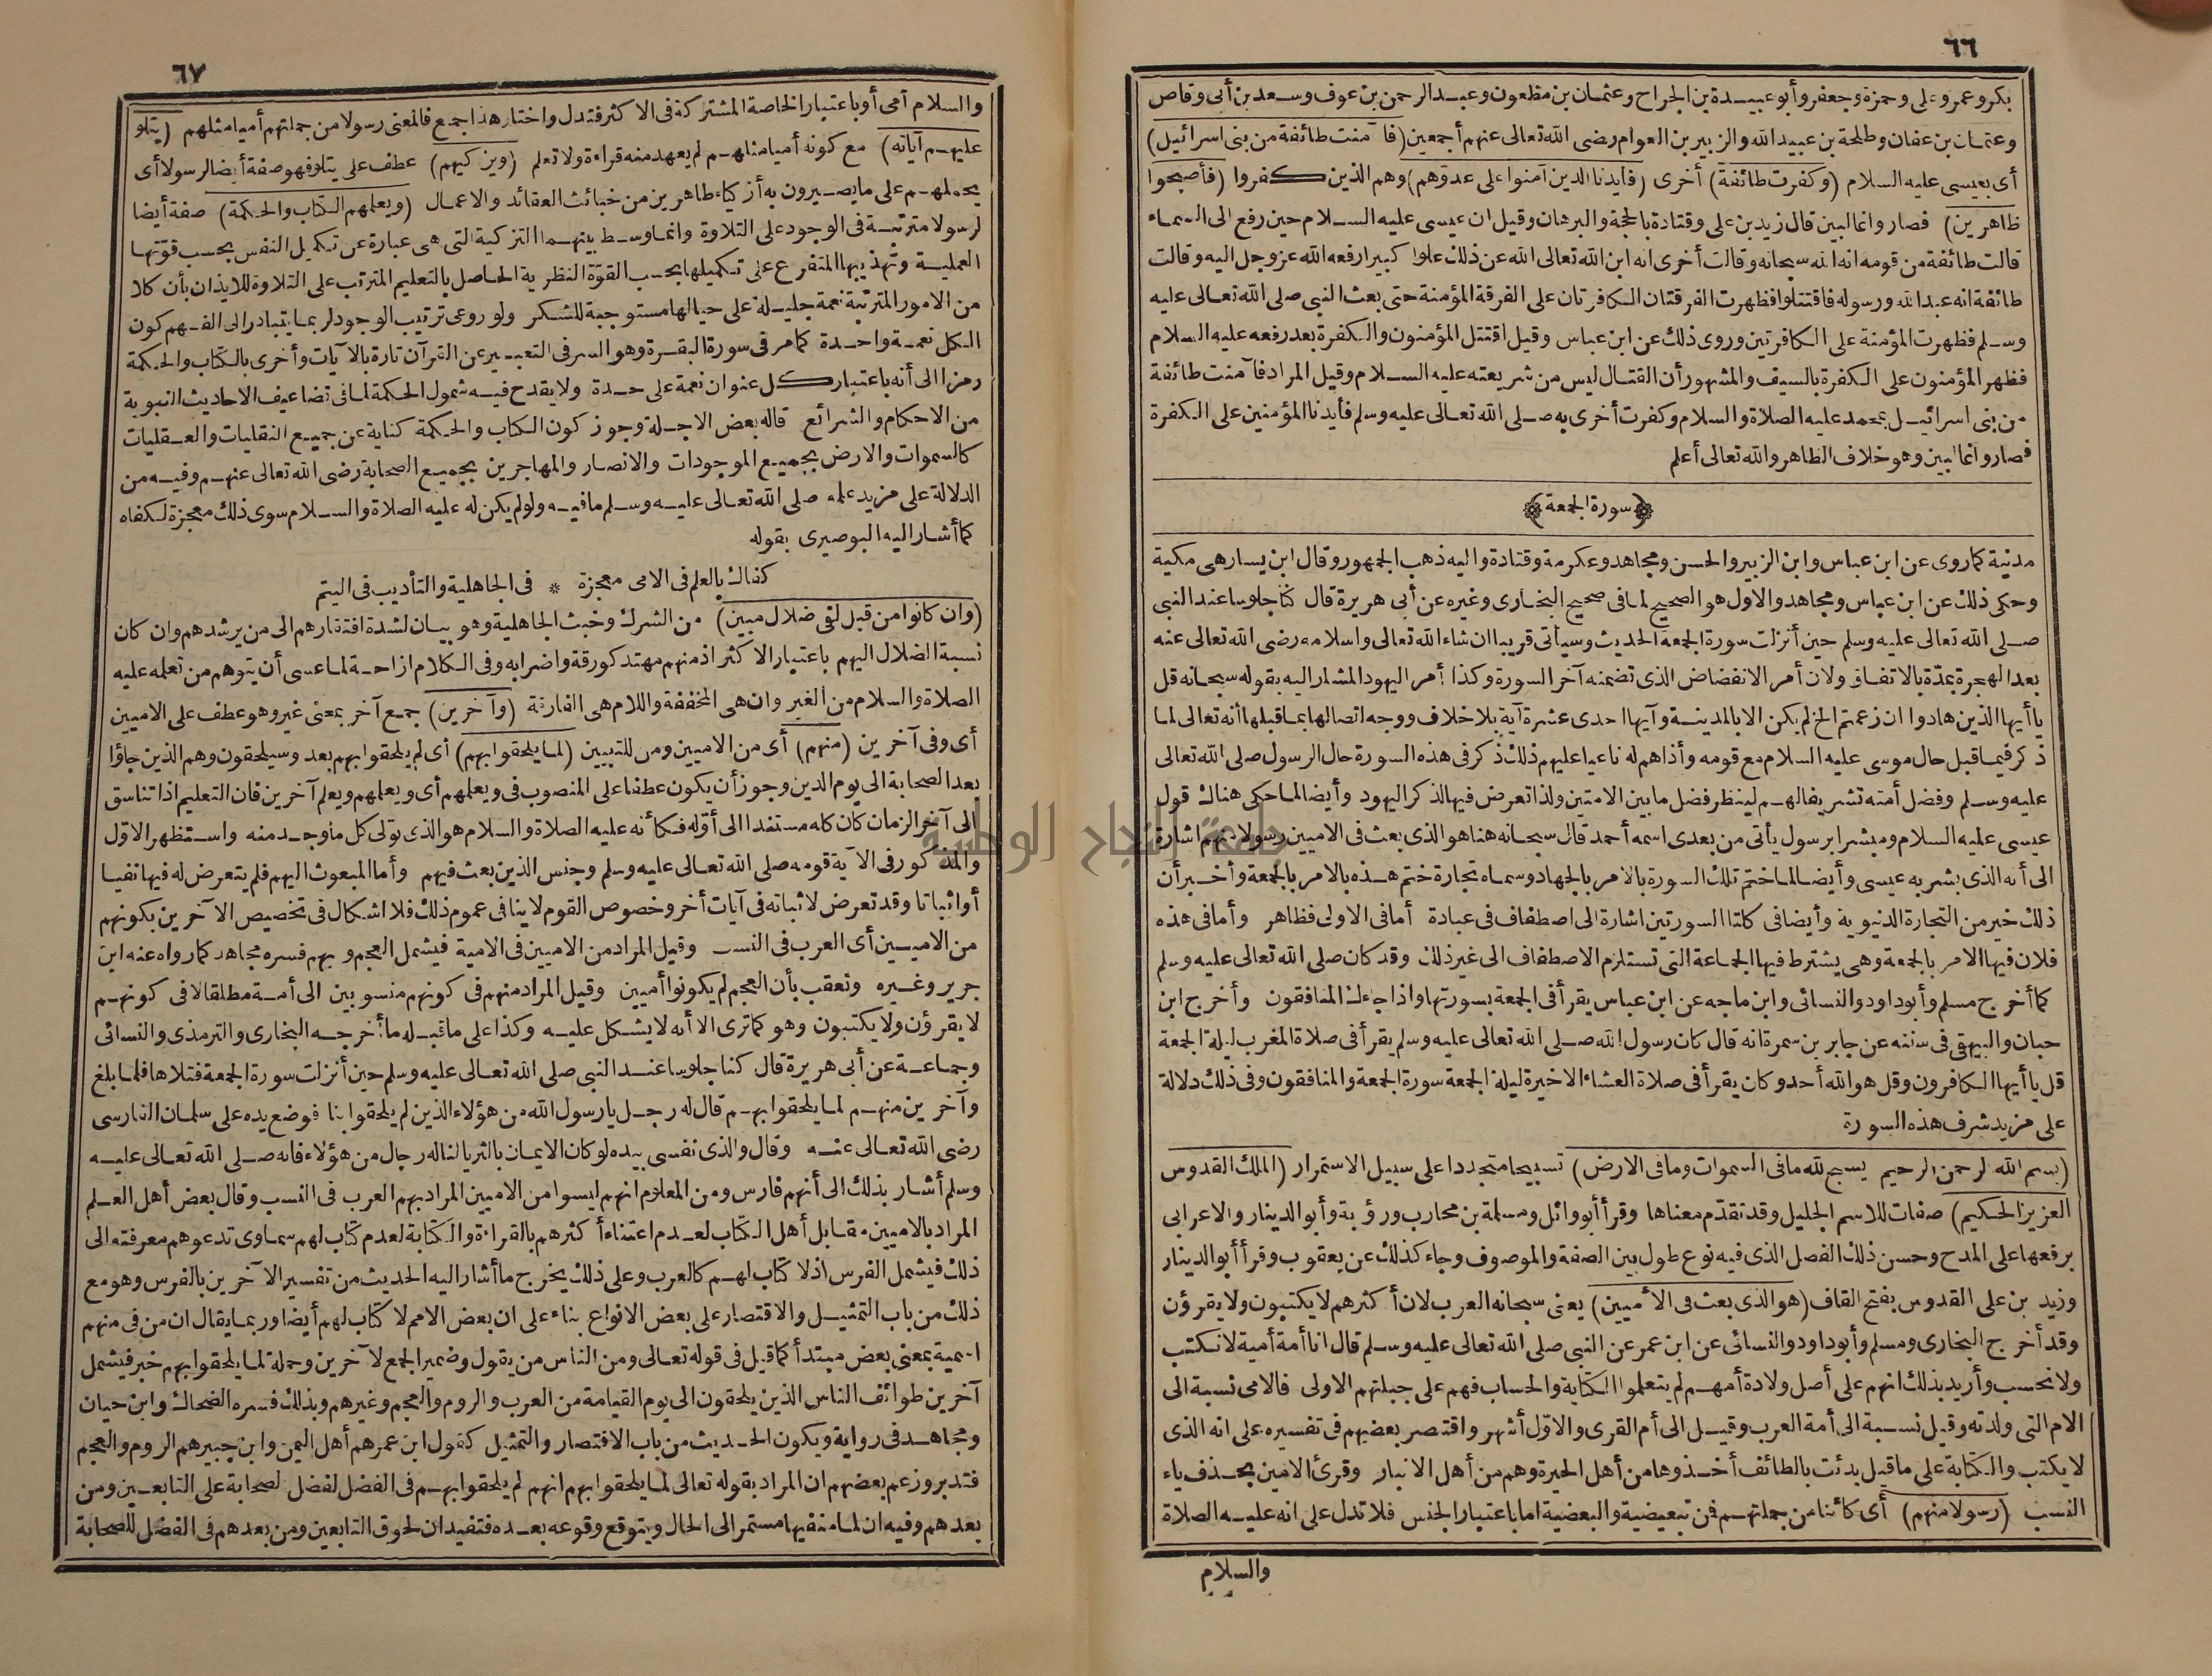 ٦٦
بكر وعمر وعلى وحمزة وجعفر وأبو عبيدة بن الجراح وعثمان بن مظعون وعبد الرحمن بن عوف وسعد بن أبى وقاص
وعثمان بن عفان وطلحة بن عبيد الله والزبير بن العوام رضى الله تعالى عنهم أجمعين (فآمنت طائفة من بنى اسرائيل)
أى بعيسى عليه السلام (وكفرت طائفة) أخرى (فأيدنا الذين آمنوا على عدوهم) وهم الذين كفروا (فأصبحوا
ظاهرين) فصاروا غالبين قال زيد بن على وقتادة بالحجة والبرهان وقيل ان عيسى عليه السلام حين رفع الى السماء
قالت طائفة من قومه انه الله سبحانه وقالت أخرى انه ابن الله تعالى الله عن ذلك علوا كبيرا رفعه الله عز وجل اليه وقالت
طائفة انه عبد الله ورسوله فاقتتلوا فظهرت الفرقتان الكافرتان على الفرقة المؤمنة حتى بعث النبى صلى الله تعالى عليه
وسلم فظهرت المؤمنة على الكافرتين وروى ذلك عن ابن عباس وقيل اقتتل المؤمنون والكفرة بعد رفعه عليه السلام
فظهر المؤمنون على الكفرة بالسيف والمشهور أن القتال ليس من شريعته عليه السلام وقيل المراد فآمنت طائفة
من بنى اسرائيل بمحمد عليه الصلاة والسلام وكفرت أخرى به صلى الله تعالى عليه وسلم فأيدنا المؤمنين على الكفرة
فصاروا غالبين وهو خلاف الظاهر والله تعالى أعلم
﴿سورة الجمعة﴾
مدنية كما روى عن ابن عباس وابن الزبير والحسن ومجاهد وعكرمة وقتادة واليه ذهب الجمهور وقال ابن يسار هى مكية
وحكى ذلك عن ابن عباس ومجاهد والاول هو الصحيح لما فى صحيح البخارى وغيره عن أبى هريرة قال كنا جلوسا عند النبى
صلى الله تعالى عليه وسلم حين أنزلت سورة الجمعة الحديث وسيأتى قريبا ان شاء الله تعالى واسلامه رضى الله تعالى عنه
بعد الهجرة بمدة بالاتفاق ولان أمر الانفضاض الذى تضمنه آخر السورة وكذا أمر اليهود المشار اليه بقوله سبحانه قل
يا أيها الذين هادوا ان زعمتم الخ لم يكن الا بالمدينة وآيها احدى عشرة آية بلا خلاف ووجه اتصالها بما قبلها أنه تعالى لما
ذكر فيما قبل حال موسى عليه السلام مع قومه وأذاهم له ناعيا عليهم ذلك ذكر فى هذه السورة حال الرسول صلى الله تعالى
عليه وسلم وفضل أمته تشريفا لهم لينظر فضل ما بين الامتين ولذا تعرض فيها لذكر اليهود وأيضا لما حكى هناك قول
عيسى عليه السلام ومبشرا برسول يأتى من بعدى اسمه أحمد قال سبحانه هنا هو الذى بعث فى الاميين رسولا منهم اشارة
الى أنه الذى بشر به عيسى وأيضا لما ختم تلك السورة بالامر بالجهاد وسماه تجارة ختم هذه بالامر بالجمعة وأخبر أن
ذلك خير من التجارة الدنيوية وأيضا فى كلتا السورتين اشارة الى اصطفاف فى عبادة أما فى الاولى فظاهر وأما فى هذه
فلان فيها الامر بالجمعة وهى يشترط فيها الجماعة التى تستلزم الاصطفاف الى غير ذلك وقد كان صلى الله تعالى عليه وسلم
كما أخرج مسلم وأبو داود والنسائى وابن ماجه عن ابن عباس يقرأ فى الجمعة بسورتها واذا جاءك المنافقون وأخرج ابن
حبان والبيهقى فى سننه عن جابر بن سمرة انه قال كان رسول الله صلى الله تعالى عليه وسلم يقرأ فى صلاة المغرب ليلة الجمعة
قل يا أيها الكافرون وقل هو الله أحد وكان يقرأ فى صلاة العشاء الاخيرة ليلة الجمعة سورة الجمعة والمنافقون وفى ذلك دلالة
على مزيد شرف هذه السورة
(بسم الله الرحمن الرحيم يسبح لله ما فى السموات وما فى الارض) تسبيحا متجددا على سبيل الاستمرار (الملك القدوس
العزيز الحكيم) صفات للاسم الجليل وقد تقدم معناها وقرأ أبو وائل ومسلمة بن محارب ورؤبة وأبو الدينار والاعرابى
برفعها على المدح وحسن ذلك الفصل الذى فيه نوع طول بين الصفة والموصوف وجاء كذلك عن يعقوب وقرأ أبو الدينار
وزيد بن على القدوس بفتح القاف (هو الذى بعث فى الأميين) يعنى سبحانه العرب لان أكثرهم لا يكتبون ولا يقرؤن
وقد أخرج البخارى ومسلم وأبو داود والنسائى عن ابن عمر عن النبى صلى الله تعالى عليه وسلم قال انا أمة أمية لا نكتب
ولا نحسب وأريد بذلك انهم على أصل ولادة أمهم لم يتعلموا الكتابة والحساب فهم على جبلتهم الاولى فالامى نسبة الى
الام التى ولدته وقيل نسبة الى أمة العرب وقيل الى أم القرى والاول أشهر واقتصر بعضهم فى تفسيره على انه الذى
لا يكتب والكتابة على ما قيل بدئت بالطائف أخذوها من أهل الحيرة وهم من أهل الانبار وقرئ الامين بحذف ياء
النسب (رسولا منهم) أى كائنا من جملتهم فمن تبعيضية والبعضية اما باعتبار الجنس فلا تدل على انه عليه الصلاة
والسلام
٦٧
والسلام أمى أو باعتبار الخاصة المشتركة فى الاكثر فتدل واختار هذا جمع فالمعنى رسولا من جملتهم أميا مثلهم (يتلو
عليهم آياته) مع كونه أميا مثلهم لم يعهد منه قراءة ولا تعلم (ويزكيهم) عطف على يتلو فهو صفة أيضا لرسولا أى
يحملهم على ما يصيرون به أزكياء طاهرين من خبائث العقائد والاعمال (ويعلمهم الكتاب والحكمة) صفة أيضا
لرسولا مترتبة فى الوجود على التلاوة وانما وسط بينهما التزكية التى هى عبارة عن تكميل النفس بحسب قوتها
العملية وتهذيبها المتفرع على تكميلها بحسب القوة النظرية الحاصل بالتعليم المترتب على التلاوة للايذان بأن كلا
من الامور المترتبة نعمة جليلة على حيالها مستوجبة للشكر ولو روعى ترتيب الوجود لربما يتبادر الى الفهم كون
الكل نعمة واحدة كما مر فى سورة البقرة وهو السر فى التعبير عن القرآن تارة بالآيات وأخرى بالكتاب والحكمة
رمزا الى أنه باعتبار كل عنوان نعمة على حدة ولا يقدح فيه شمول الحكمة لما فى تضاعيف الاحاديث النبوية
من الاحكام والشرائع قاله بعض الاجلة وجوز كون الكتاب والحكمة كناية عن جميع النقليات والعقليات
كالسموات والارض بجميع الموجودات والانصار والمهاجرين بجميع الصحابة رضى الله تعالى عنهم وفيه من
الدلالة على مزيد علمه صلى الله تعالى عليه وسلم ما فيه ولو لم يكن له عليه الصلاة والسلام سوى ذلك معجزة لكفاه
كما أشار اليه البوصيرى بقوله
كفاك بالعلم فى الامى معجزة * فى الجاهلية والتأديب فى اليتم
(وان كانوا من قبل لفى ضلال مبين) من الشرك وخبث الجاهلية وهو بيان لشدة افتقارهم الى من يرشدهم وان كان
نسبة الضلال اليهم باعتبار الاكثر اذ منهم مهتد كورقة واضرابه وفى الكلام ازاحة لما عسى أن يتوهم من تعلمه عليه
الصلاة والسلام من الغير وان هى المخففة واللام هى الفارقة (وآخرين) جمع آخر بمعنى غير وهو عطف على الاميين
أى وفى آخرين (منهم) أى من الاميين ومن للتبيين (لما يلحقوا بهم) أى لم يلحقوا بهم بعد وسيلحقون وهم الذين جاؤا
بعد الصحابة الى يوم الدين وجوز أن يكون عطفا على المنصوب فى ويعلمهم أى ويعلمهم ويعلم آخرين فان التعليم اذا تناسق
الى آخر الزمان كان كله مستندا الى أوله فكأنه عليه الصلاة والسلام هو الذى تولى كل ما وجد منه واستظهر الاول
والمذكور فى الآية قومه صلى الله تعالى عليه وسلم وجنس الذين بعث فيهم وأما المبعوث اليهم فلم يتعرض له فيها نفيا
أو اثباتا وقد تعرض لاثباته فى آيات أخر وخصوص القوم لا ينافى عموم ذلك فلا اشكال فى تخصيص الآخرين بكونهم
من الاميين أى العرب فى النسب وقيل المراد من الاميين فى الامية فيشمل العجم وبهم فسره مجاهد كما رواه عنه ابن
جرير وغيره وتعقب بأن العجم لم يكونوا أميين وقيل المراد منهم فى كونهم منسوبين الى أمة مطلقا لا فى كونهم
لا يقرؤن ولا يكتبون وهو كما ترى الا أنه لا يشكل عليه وكذا على ما قبله ما أخرجه البخارى والترمذى والنسائى
وجماعة عن أبى هريرة قال كنا جلوسا عند النبى صلى الله تعالى عليه وسلم حين أنزلت سورة الجمعة فتلاها فلما بلغ
وآخرين منهم لما يلحقوا بهم قال له رجل يا رسول الله من هؤلاء الذين لم يلحقوا بنا فوضع يده على سلمان الفارسى
رضى الله تعالى عنه وقال والذى نفسى بيده لو كان الايمان بالثريا لناله رجال من هؤلاء فانه صلى الله تعالى عليه
وسلم أشار بذلك الى أنهم فارس ومن المعلوم انهم ليسوا من الاميين المراد بهم العرب فى النسب وقال بعض أهل العلم
المراد بالاميين مقابل أهل الكتاب لعدم اعتناء أكثرهم بالقراءة والكتابة لعدم كتاب لهم سماوى تدعوهم معرفته الى
ذلك فيشمل الفرس اذ لا كتاب لهم كالعرب وعلى ذلك يخرج ما أشار اليه الحديث من تفسير الآخرين بالفرس وهو مع
ذلك من باب التمثيل والاقتصار على بعض الانواع بناء على ان بعض الامم لا كتاب لهم أيضا وربما يقال ان من فى منهم
اسمية بمعنى بعض مبتدأ كما قيل فى قوله تعالى ومن الناس من يقول وضمير الجمع لآخرين وجملة لما يلحقوا بهم خبر فيشمل
آخرين طوائف الناس الذين يلحقون الى يوم القيامة من العرب والروم والعجم وغيرهم وبذلك فسره الضحاك وابن حيان
ومجاهد فى رواية ويكون الحديث من باب الاقتصار والتمثيل كقول ابن عمر هم أهل اليمن وابن جبير هم الروم والعجم
فتدبر وزعم بعضهم ان المراد بقوله تعالى لما يلحقوا بهم انهم لم يلحقوا بهم فى الفضل لفضل الصحابة على التابعين ومن
بعدهم وفيه ان لما منفيها مستمر الى الحال ويتوقع وقوعه بعده فتفيد ان لحوق التابعين ومن بعدهم فى الفضل للصحابة
جامعة النجاح الوطنية